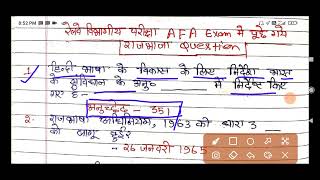 8:52 PM
रेलवे विभागीय परीक्षा AFA Exam में पूछे गये
राजभाषा Question
1. हिन्दी भाषा के विकास के लिए निर्देश भारत
के संविधान के अनु० ______ में निर्दिष्ट किए
गए है -
अनुच्छेद - 351
2. राजभाषा अधिनियम, 1963 की धारा 3 __
को लागू हुई?
- 26 जनवरी 1965